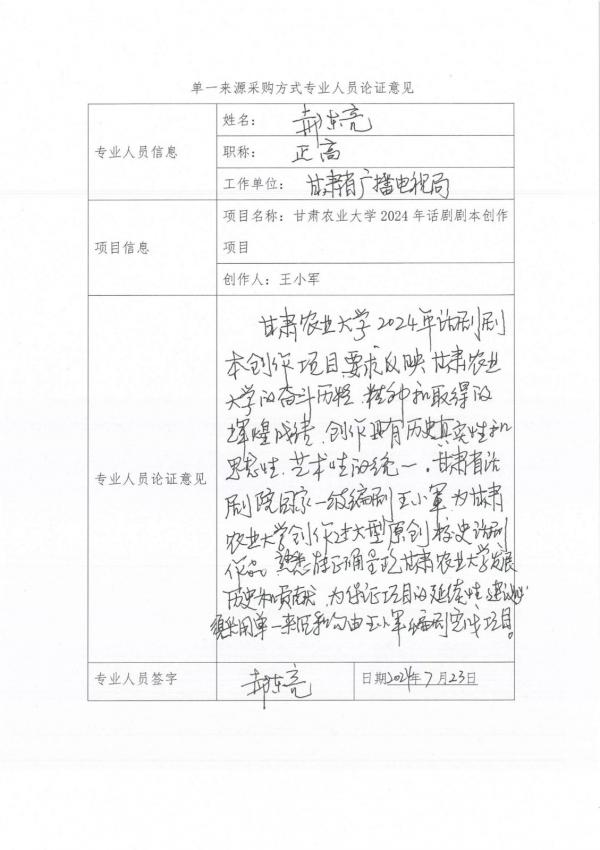 单一来源采购方式专业人员论证意见
专业人员信息
姓名：郝东亮
职称：正高
工作单位：甘肃省广播电视局
项目信息
项目名称：甘肃农业大学2024年话剧剧本创作
项目
创作人：王小军
专业人员论证意见
甘肃农业大学2024年话剧剧
本创作项目要求反映甘肃农业
大学的奋斗历程、精神和取得的
辉煌成绩，创作具有历史真实性和
思想性、艺术性的统一。甘肃省话
剧院国家一级编剧王小军为甘肃
农业大学创作过大型原创校史话剧
作品，熟悉 正确呈现甘肃农业大学发展
历史和贡献，为保证项目的延续性，建议
采用单一来源 由王小军编剧完成项目。
专业人员签字
郝东亮
日期2024年7月23日